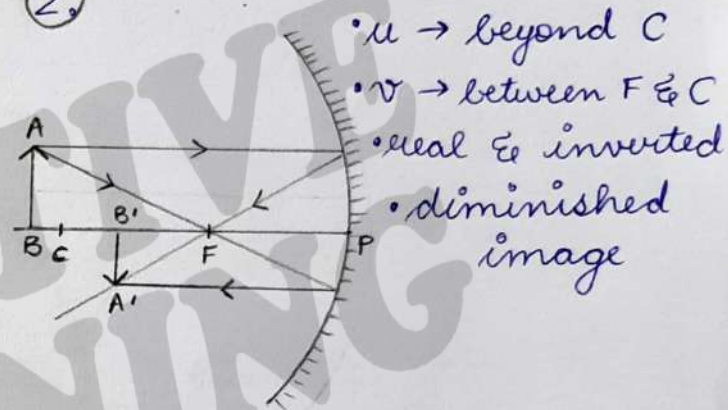 2.
• u → beyond C
• v → between F & C
• real & inverted
• diminished
image
A
B C B' F P
A'
TIVE
NING